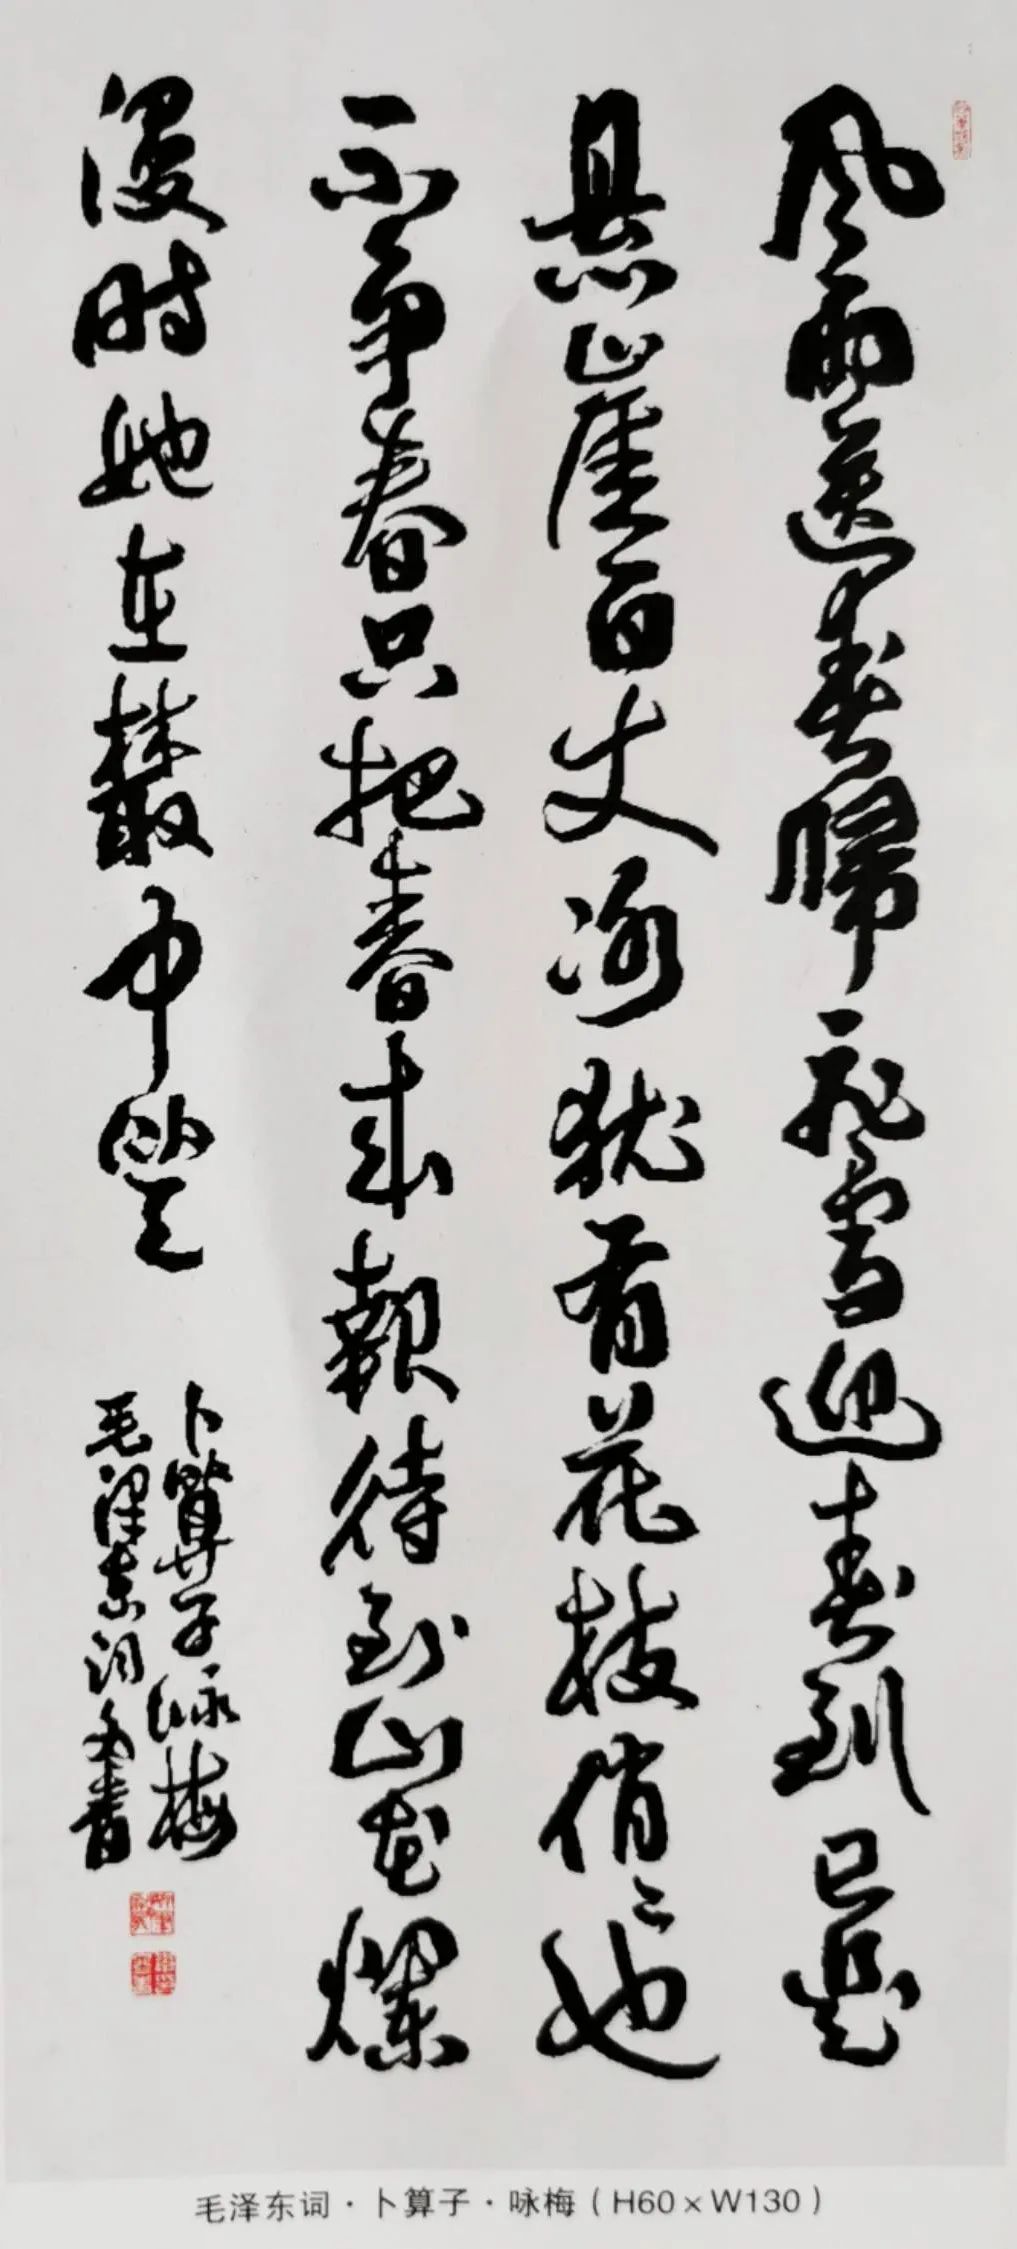 风雨送春歸飛雪迎春到已是
悬崖百丈冰犹有花枝俏〻也
不争春只把春来報待到山花爛
漫时她在叢中笑
卜算子咏梅
毛泽东词书
毛泽东词·卜算子·咏梅（H60×W130）